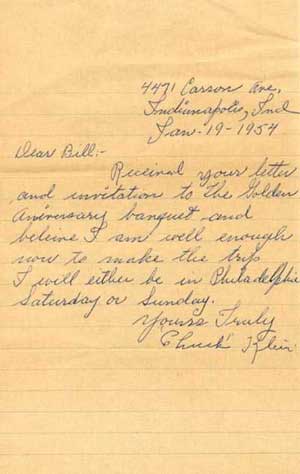 4471 Carson Ave,
Indianapolis, Ind
Jan-19-1954
Dear Bill:-
Received your letter
and invitation to the Golden
Aniversary banquet and
believe I am well enough
now to make the trip
I will either be in Philadelphia
Saturday or Sunday.
Yours Truly
Chuck Klein